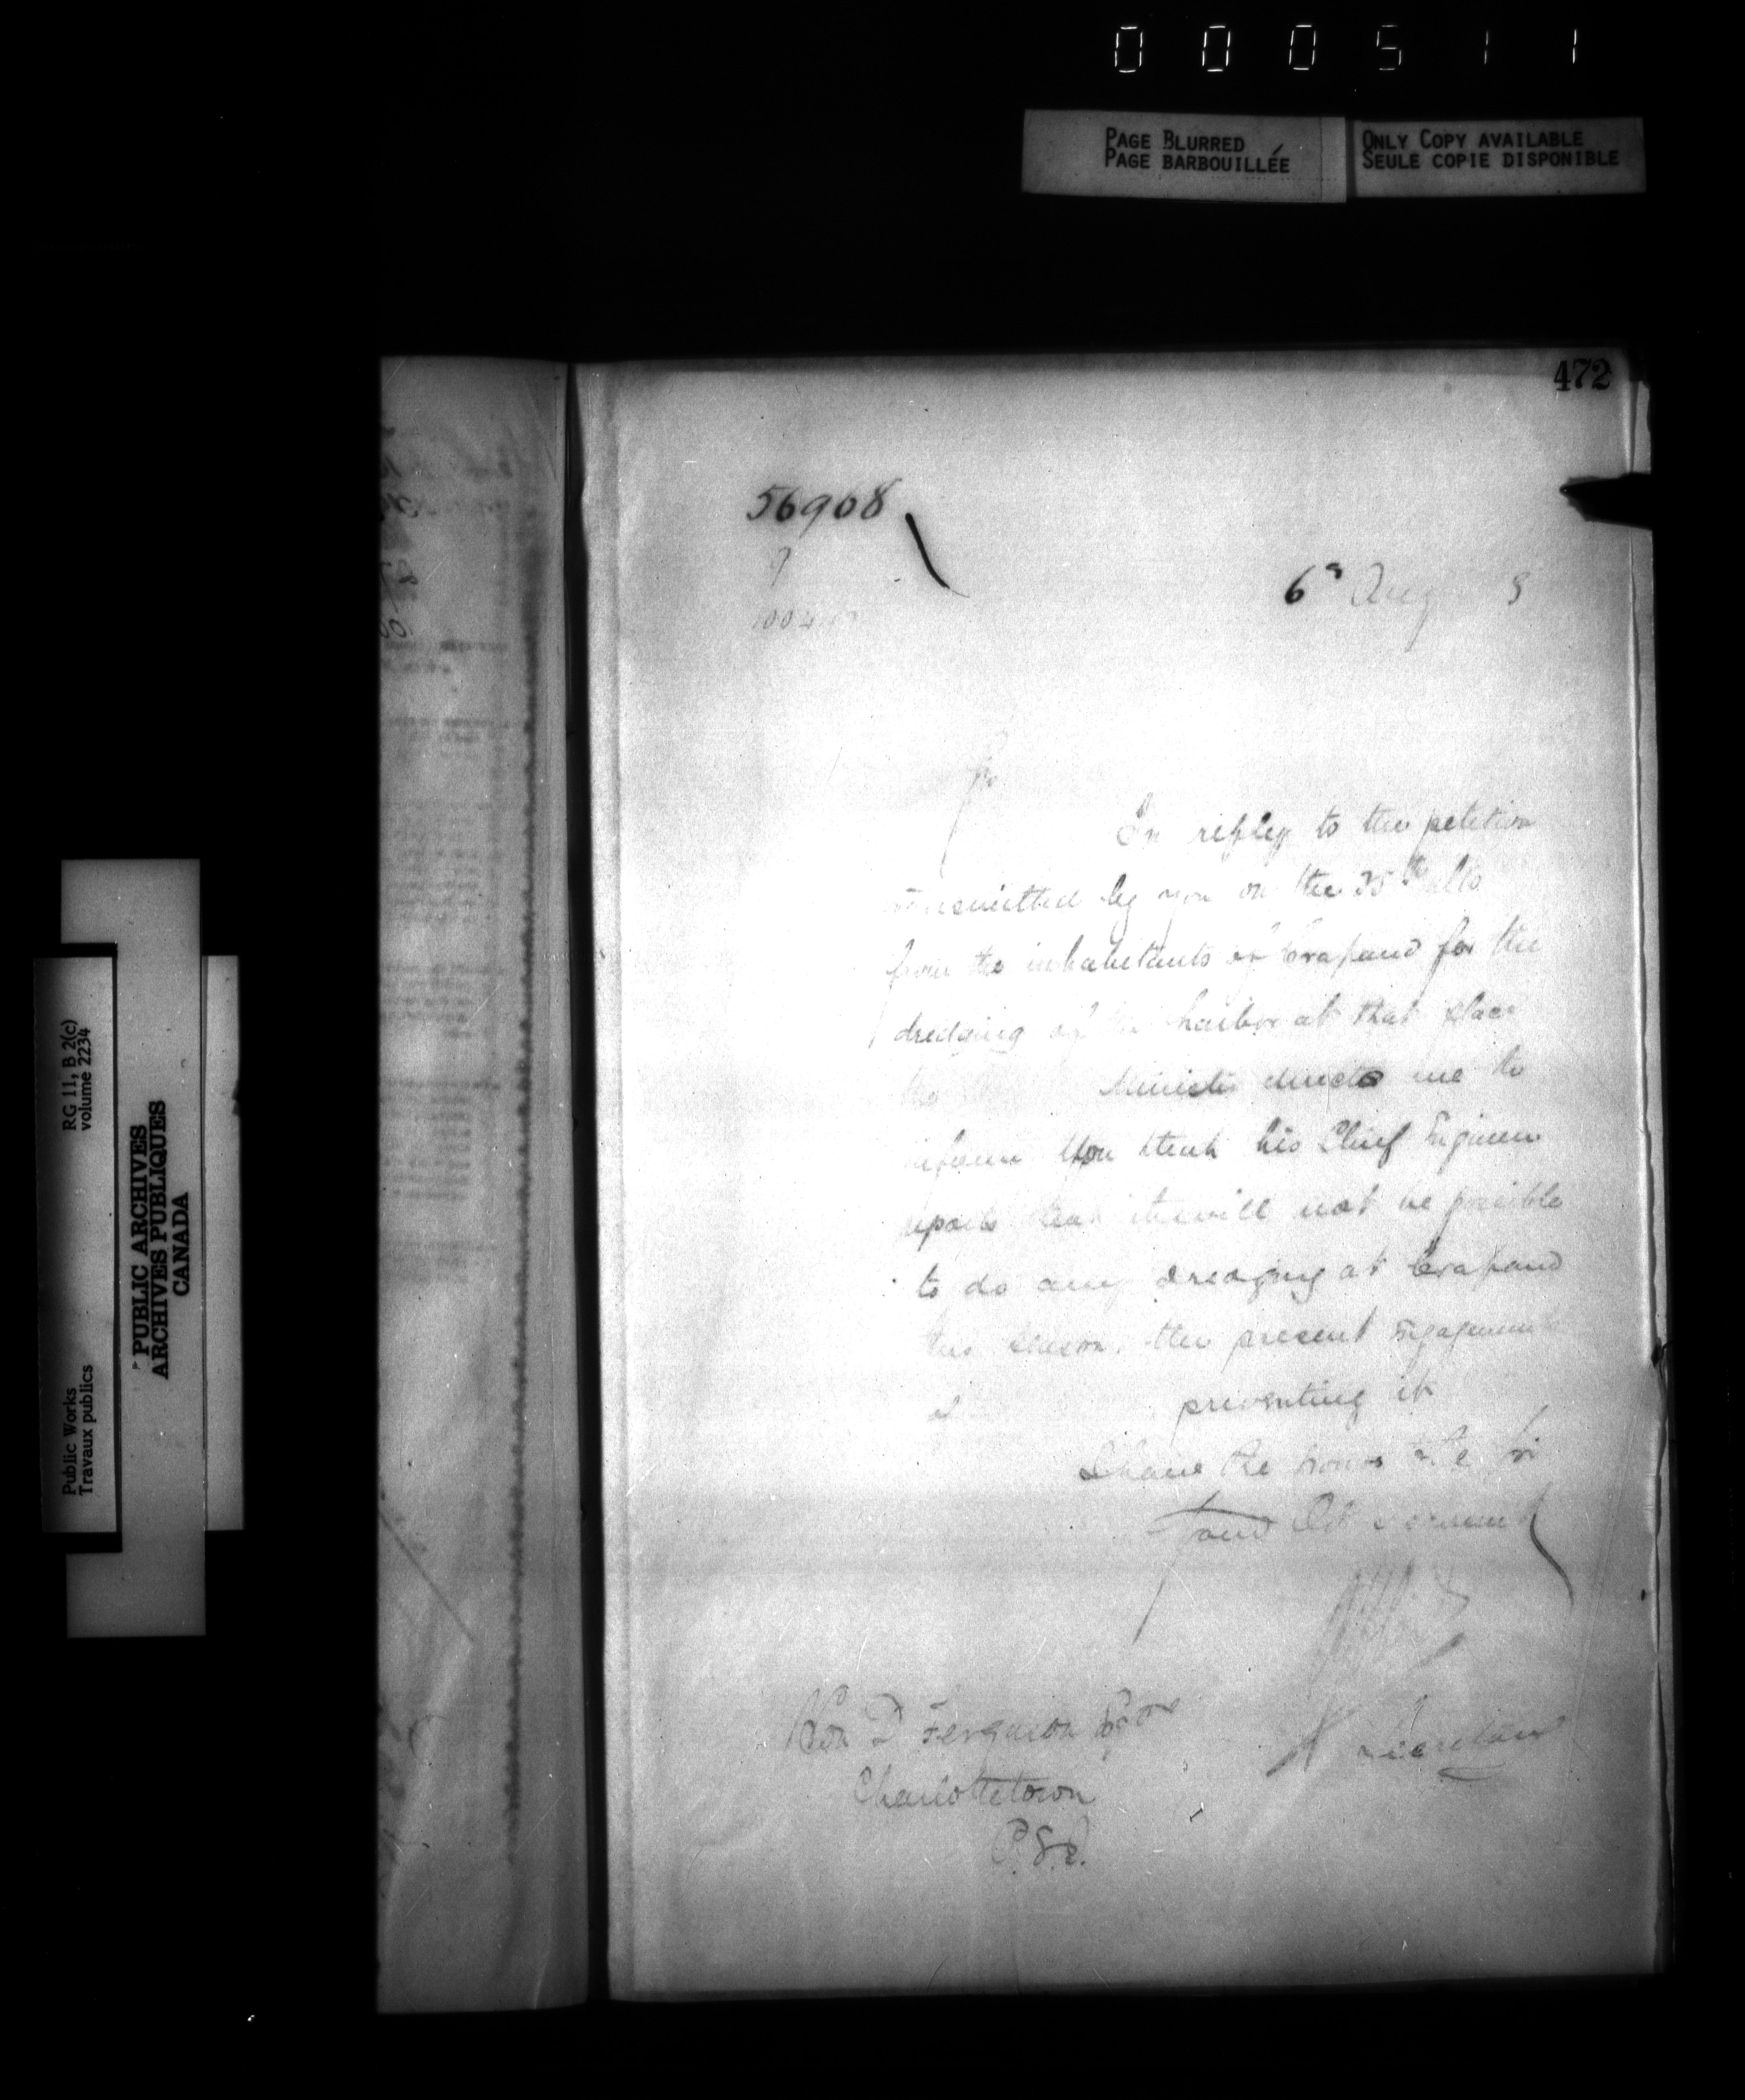 000511
PAGE BLURRED
PAGE BARBOUILLÉE
ONLY COPY AVAILABLE
SEULE COPIE DISPONIBLE
472
56968
6 Aug 3
In reply to the petition
transmitted by you on the 25th ulto
from the inhabitants of Crapaud for the
dredging of the harbor at that place
the Minister directs me to
inform you that his Chief Engineer
reports that it will not be possible
to do any dredging at Crapaud
this season, the present Engagements
of preventing it
I have the honor to be Sir
Your Obt servant
Secretary
Hon D Ferguson
Charlottetown
P.E.I.
RG 11, B 2(c)
volume 2234
PUBLIC ARCHIVES
ARCHIVES PUBLIQUES
CANADA
Public Works
Travaux publics